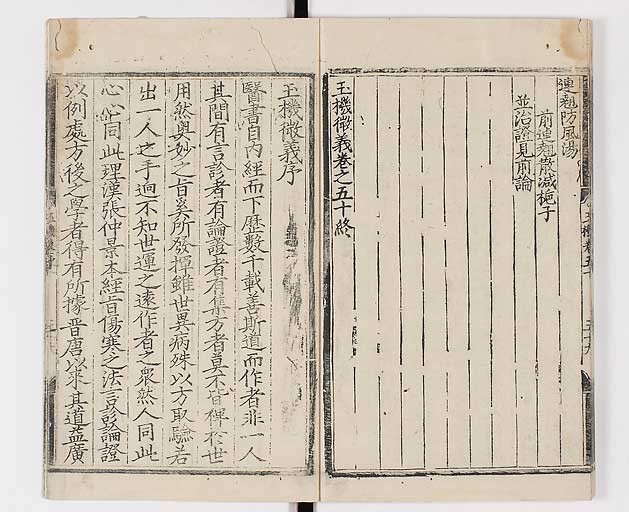 連翹防風湯
前連翹散減梔子
並治證見前論
玉機微義卷之五十終
玉機微義序
醫書自內經而下歷數千載善斯道而作者非一人
其間有言診者有論證者有集方者莫不皆裨於世
用然奧妙之旨奚所發揮雖世異病殊以方取驗若
出一人之手迥不知世運之遠作者之衆然人同此
心心同此理漢張仲景本經旨傷寒之法言診論證
以例處方後之學者得有所據晉唐以來其道益廣